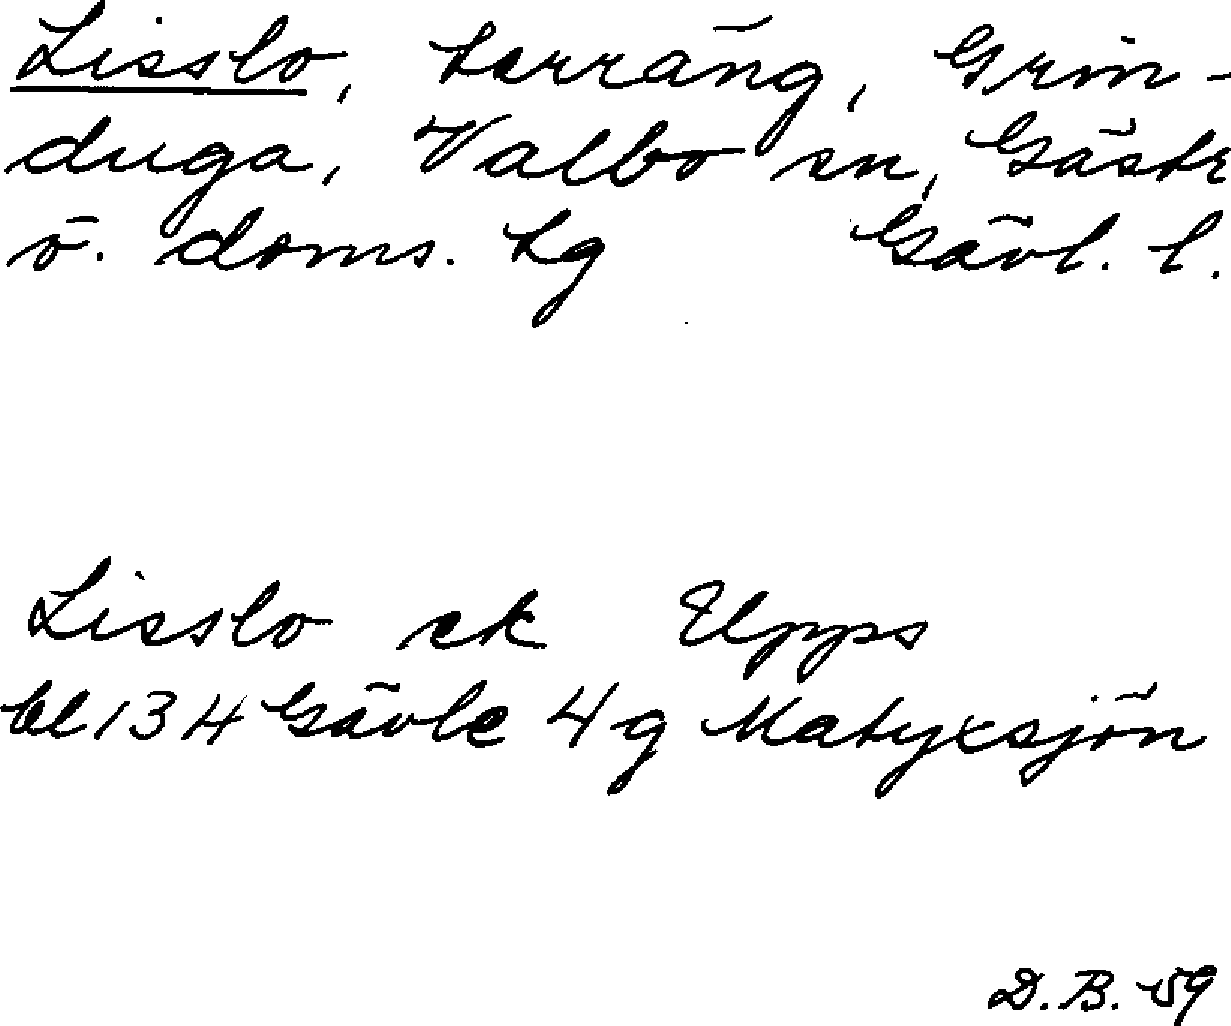 Lisslo, terräng, Grin-
duga, Valbo sn, Gästr
ö. doms. hg Gävl. l.
Lisslo ek Upps
bl 134 Gävle 4g Matyxsjön
D.B. 59